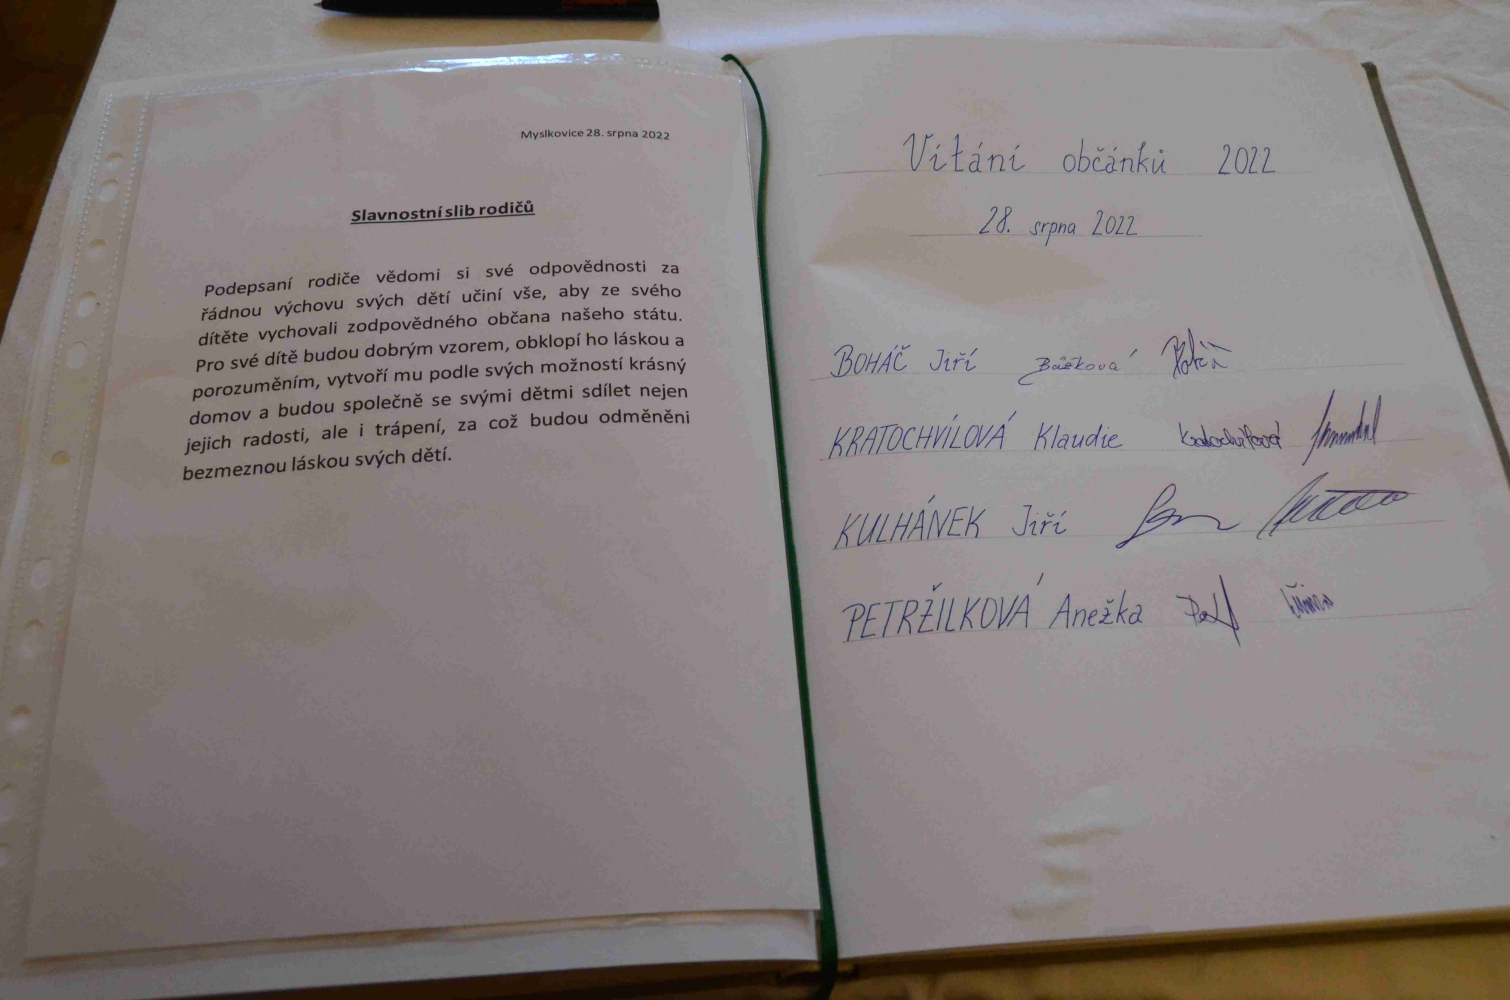 Myslkovice 28. srpna 2022
Slavnostní slib rodičů
Podepsaní rodiče vědomi si své odpovědnosti za
řádnou výchovu svých dětí učiní vše, aby ze svého
dítěte vychovali zodpovědného občana našeho státu.
Pro své dítě budou dobrým vzorem, obklopí ho láskou a
porozuměním, vytvoří mu podle svých možností krásný
domov a budou společně se svými dětmi sdílet nejen
jejich radosti, ale i trápení, za což budou odměněni
bezmeznou láskou svých dětí.
Vítání občánků 2022
28. srpna 2022
BOHÁČ Jiří
KRATOCHVÍLOVÁ Klaudie Kratochvílová
KULHÁNEK Jiří
PETRŽILKOVÁ Anežka